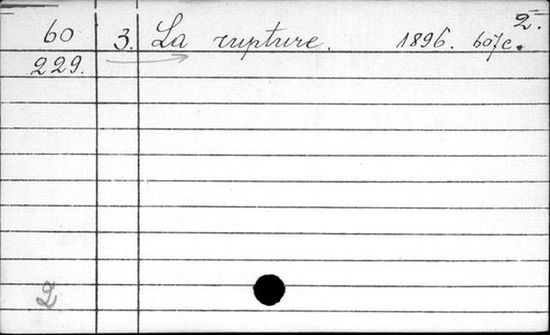 2.
60 3. La rupture. 1896. 607c.
229.
2